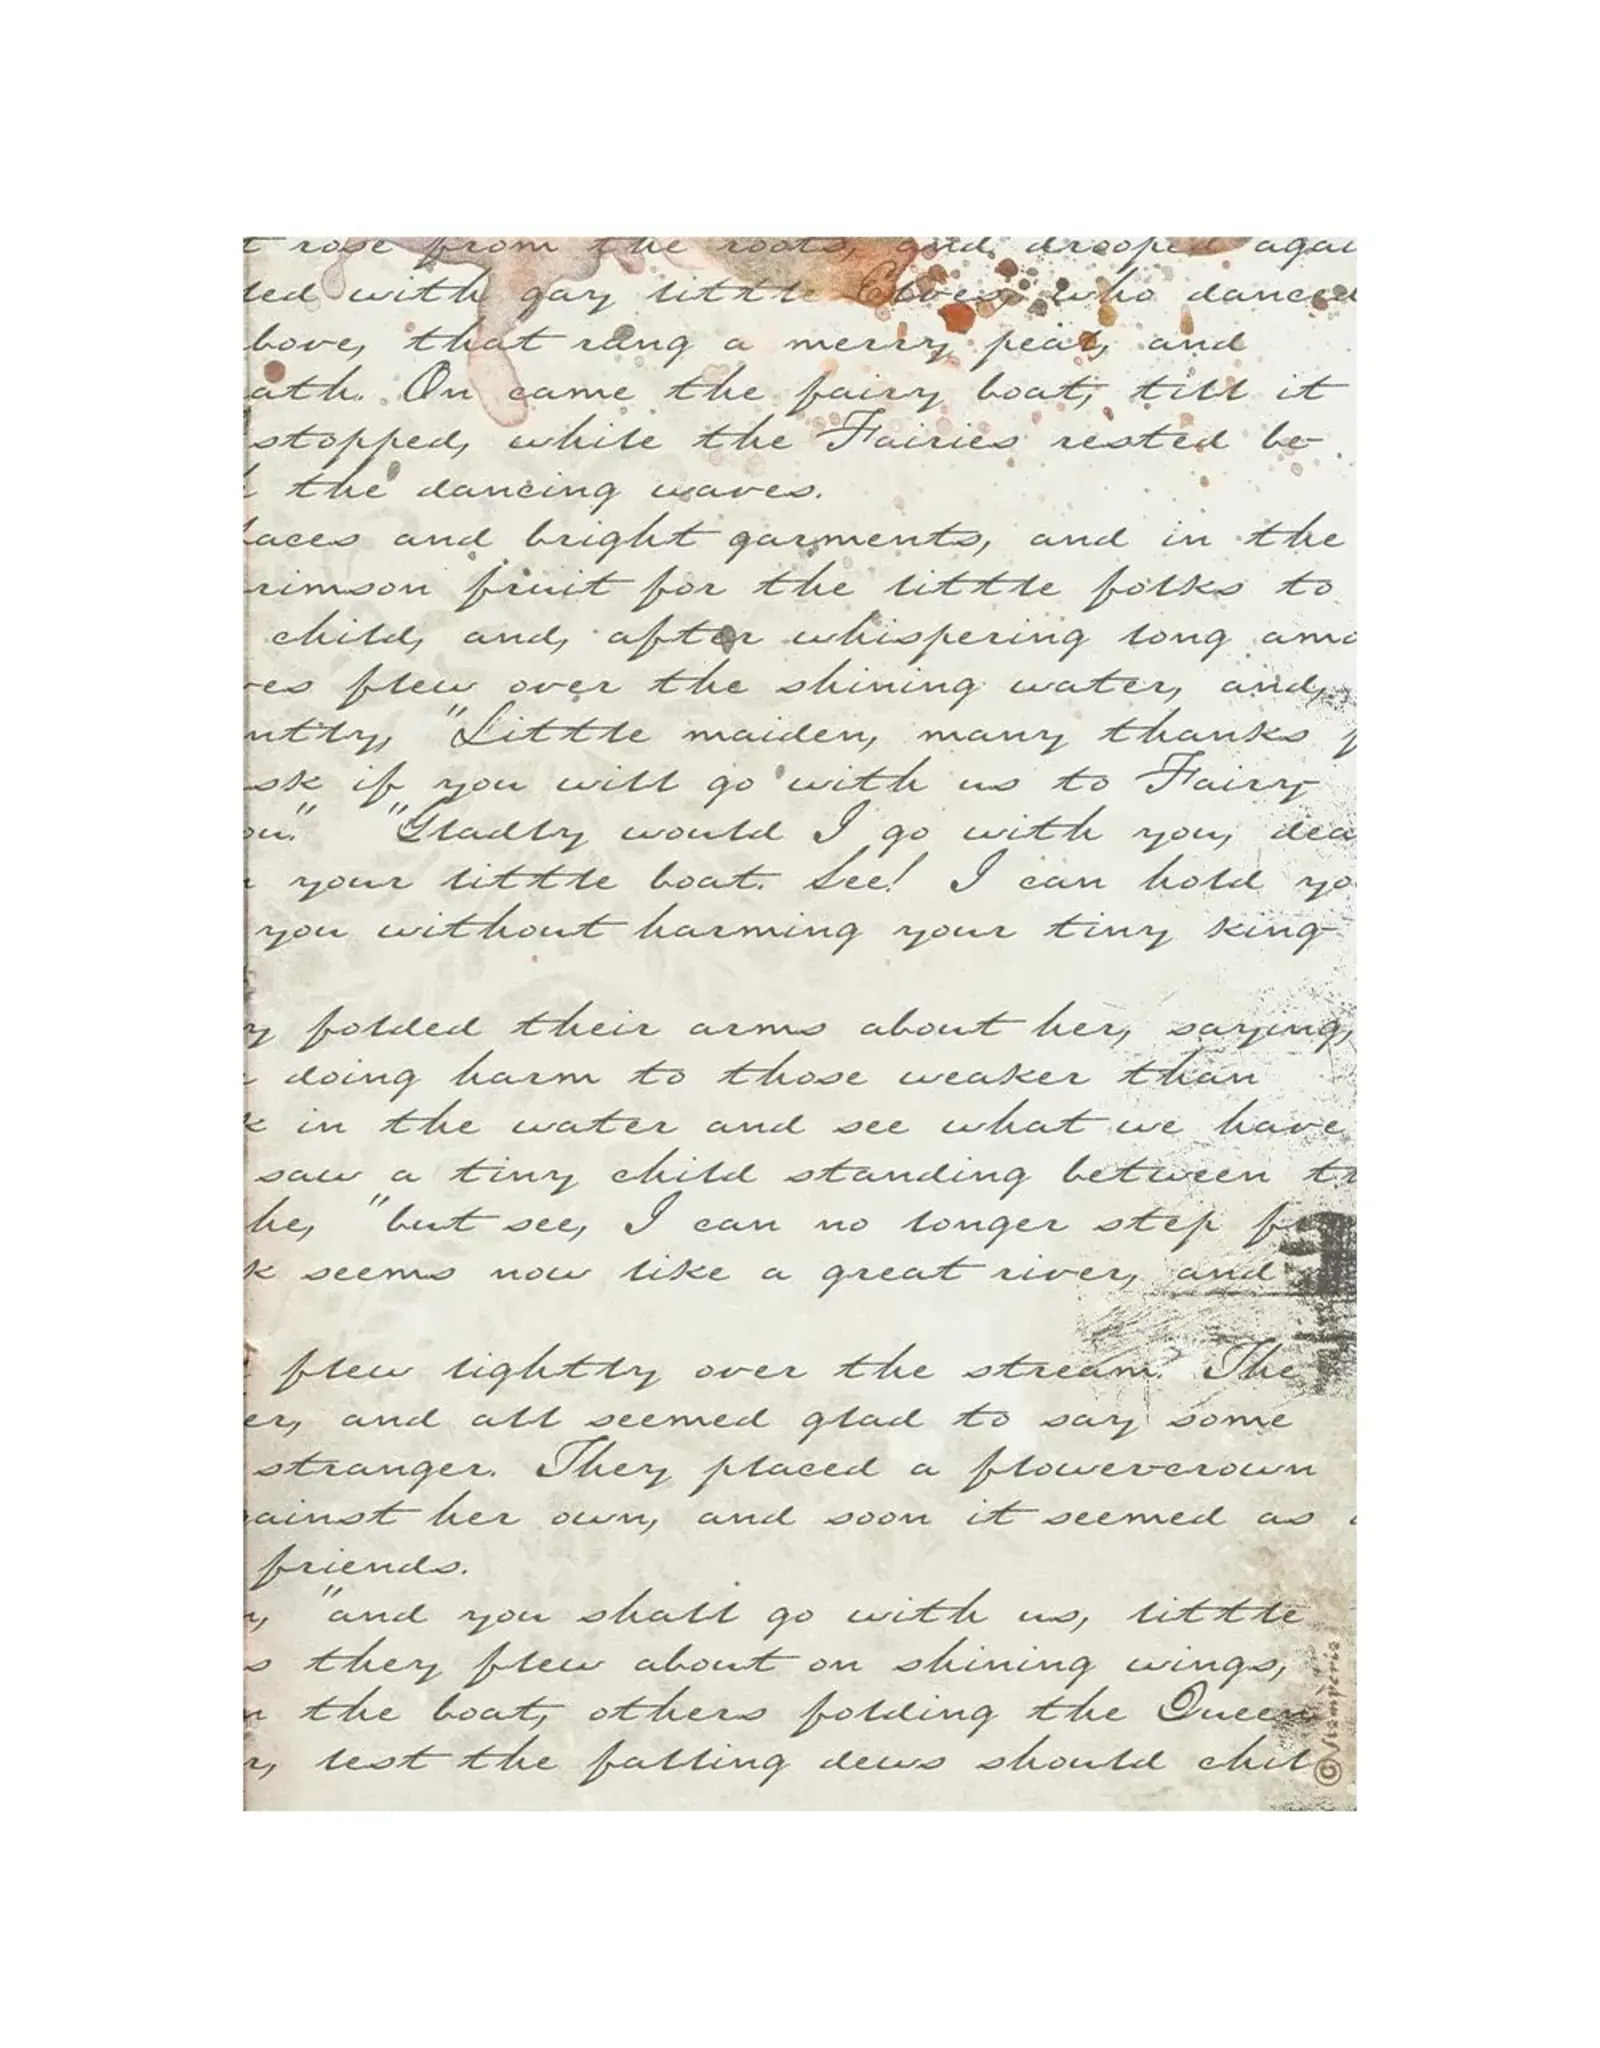 t rose from the roots, and drooped agai
led with gay little Elves, who danced
bove, that rang a merry peal, and
ath. On came the fairy boat, till it
stopped, while the Fairies rested be-
the dancing waves.
faces and bright garments, and in the
rimson fruit for the little folks to
child, and, after whispering long amo
ves flew over the shining water, and,
ntly, "Little maiden, many thanks f
sk if you will go with us to Fairy-
ou." "Gladly would I go with you, dea
your little boat. See! I can hold yo
you without harming your tiny king-
y folded their arms about her, saying,
doing harm to those weaker than
k in the water and see what we have
saw a tiny child standing between th
he, "but see, I can no longer step f
k seems now like a great river, and
flew lightly over the stream. The
er, and all seemed glad to say some
stranger. They placed a flower-crown
gainst her own, and soon it seemed as
friends.
n, "and you shall go with us, little
s they flew about on shining wings,
n the boat, others folding the Queen
r, lest the falling dews should chil
©Stamperia